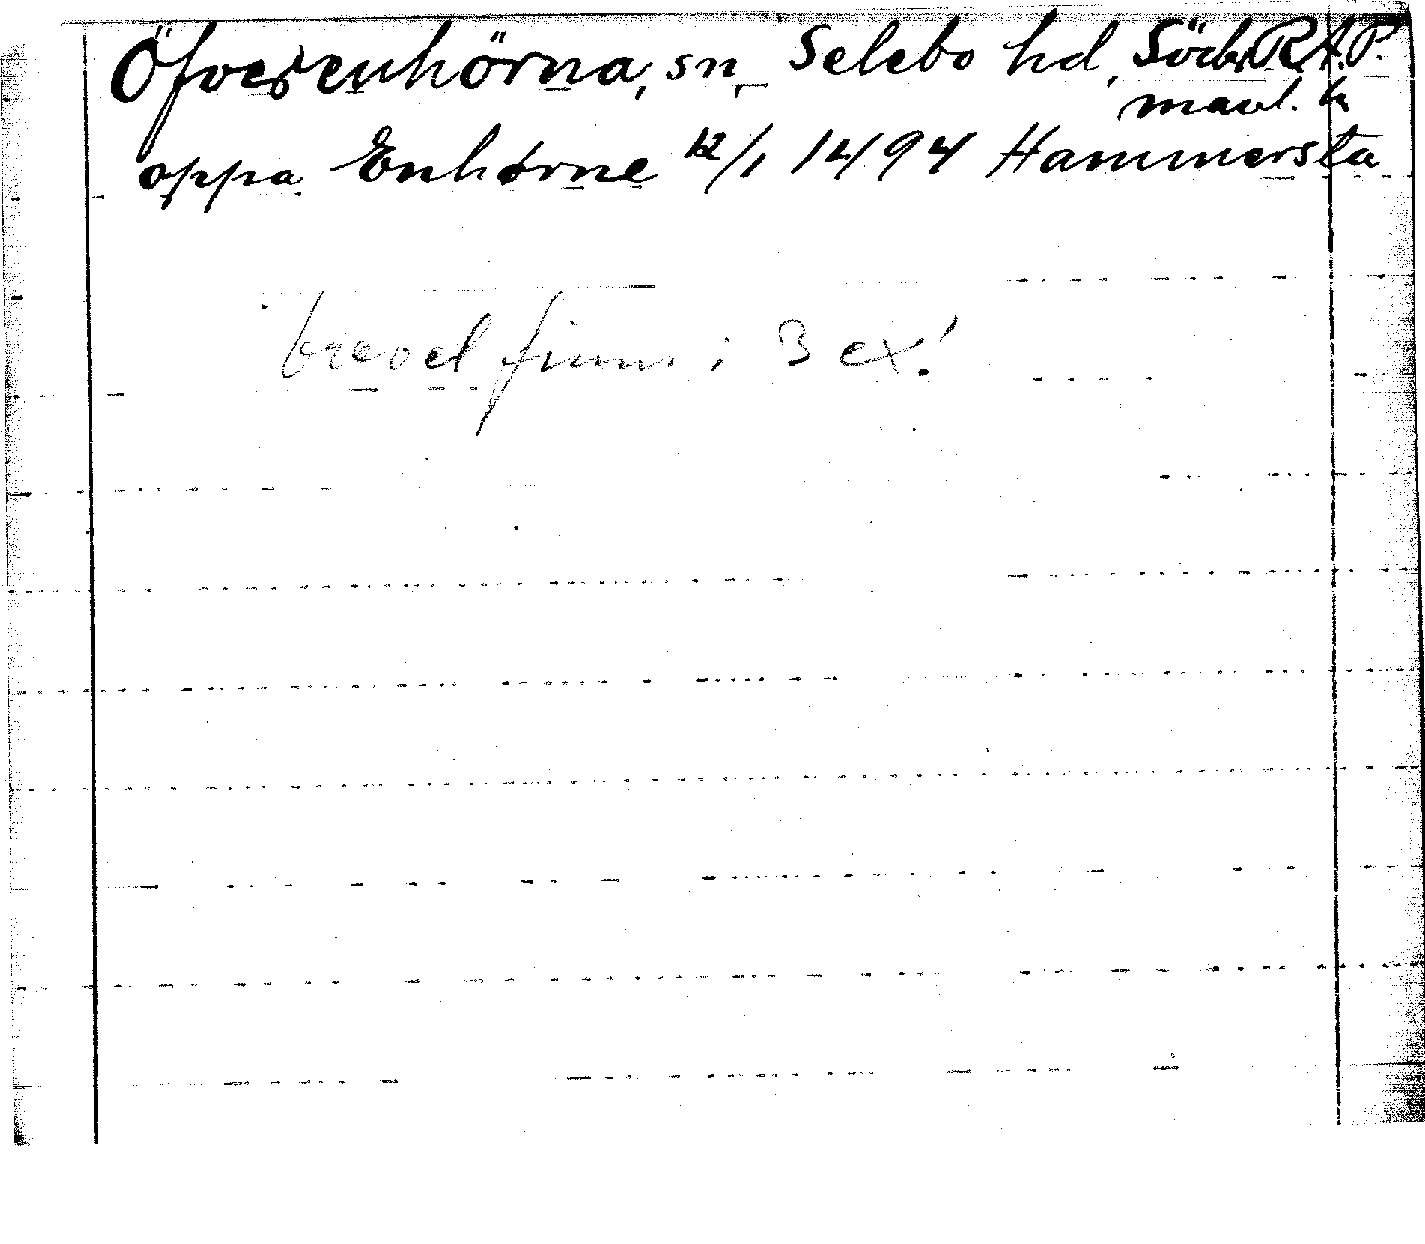 Öfverenhörna, sn, Selebo hd, Söderm. R.A.P.
oppa Enhørne 12/1 1494 Hammersta
brevet finns i 3 ex!